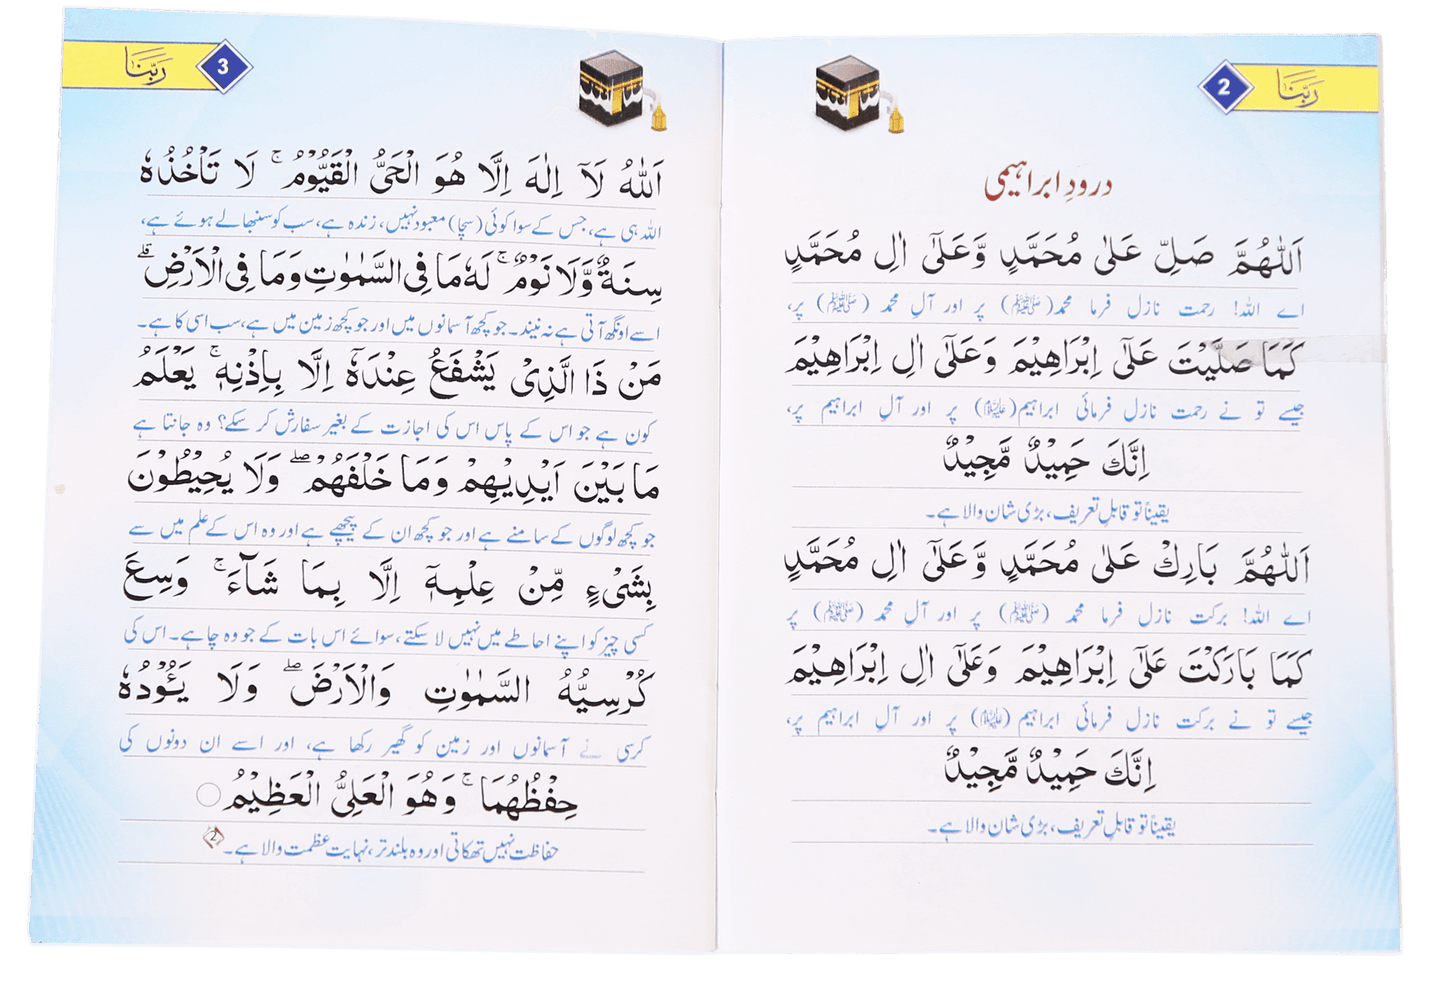 ربنا
2
درودِ ابراہیمی
اَللّٰهُمَّ صَلِّ عَلٰى مُحَمَّدٍ وَّعَلٰٓى اٰلِ مُحَمَّدٍ
اے اللہ! رحمت نازل فرما محمد(ﷺ) پر اور آلِ محمد (ﷺ) پر،
كَمَا صَلَّيْتَ عَلٰٓى اِبْرَاهِيْمَ وَعَلٰٓى اٰلِ اِبْرَاهِيْمَ
جیسے تو نے رحمت نازل فرمائی ابراہیم(علیہ السلام) پر اور آلِ ابراہیم پر،
اِنَّكَ حَمِيْدٌ مَّجِيْدٌ
یقیناً تو قابلِ تعریف، بڑی شان والا ہے۔
اَللّٰهُمَّ بَارِكْ عَلٰى مُحَمَّدٍ وَّعَلٰٓى اٰلِ مُحَمَّدٍ
اے اللہ! برکت نازل فرما محمد (ﷺ) پر اور آلِ محمد (ﷺ) پر
كَمَا بَارَكْتَ عَلٰٓى اِبْرَاهِيْمَ وَعَلٰٓى اٰلِ اِبْرَاهِيْمَ
جیسے تو نے برکت نازل فرمائی ابراہیم (علیہ السلام) پر اور آلِ ابراہیم پر،
اِنَّكَ حَمِيْدٌ مَّجِيْدٌ
یقیناً تو قابلِ تعریف، بڑی شان والا ہے۔
3
ربنا
اَللّٰهُ لَآ اِلٰهَ اِلَّا هُوَ الْحَيُّ الْقَيُّوْمُ ۚ لَا تَاْخُذُهٗ
اللہ ہی ہے، جس کے سوا کوئی (سچا) معبود نہیں، زندہ ہے، سب کو سنبھالے ہوئے ہے،
سِنَةٌ وَّلَا نَوْمٌ ۚ لَهٗ مَا فِى السَّمٰوٰتِ وَمَا فِى الْاَرْضِ ۗ
اسے اونگھ آتی ہے نہ نیند۔ جو کچھ آسمانوں میں اور جو کچھ زمین میں ہے، سب اسی کا ہے۔
مَنْ ذَا الَّذِىْ يَشْفَعُ عِنْدَهٗٓ اِلَّا بِاِذْنِهٖ ۚ يَعْلَمُ
کون ہے جو اس کے پاس اس کی اجازت کے بغیر سفارش کر سکے؟ وہ جانتا ہے
مَا بَيْنَ اَيْدِيْهِمْ وَمَا خَلْفَهُمْ ۖ وَلَا يُحِيْطُوْنَ
جو کچھ لوگوں کے سامنے ہے اور جو کچھ ان کے پیچھے ہے اور وہ اس کے علم میں سے
بِشَىْءٍ مِّنْ عِلْمِهٖٓ اِلَّا بِمَا شَآءَ ۚ وَسِعَ
کسی چیز کو اپنے احاطے میں نہیں لا سکتے، سوائے اس بات کے جو وہ چاہے۔ اس کی
كُرْسِيُّهُ السَّمٰوٰتِ وَالْاَرْضَ ۖ وَلَا يَـُٔوْدُهٗ
کرسی نے آسمانوں اور زمین کو گھیر رکھا ہے، اور اسے ان دونوں کی
حِفْظُهُمَا ۚ وَهُوَ الْعَلِىُّ الْعَظِيْمُ ○
حفاظت نہیں تھکاتی اور وہ بلند تر، نہایت عظمت والا ہے۔ 2